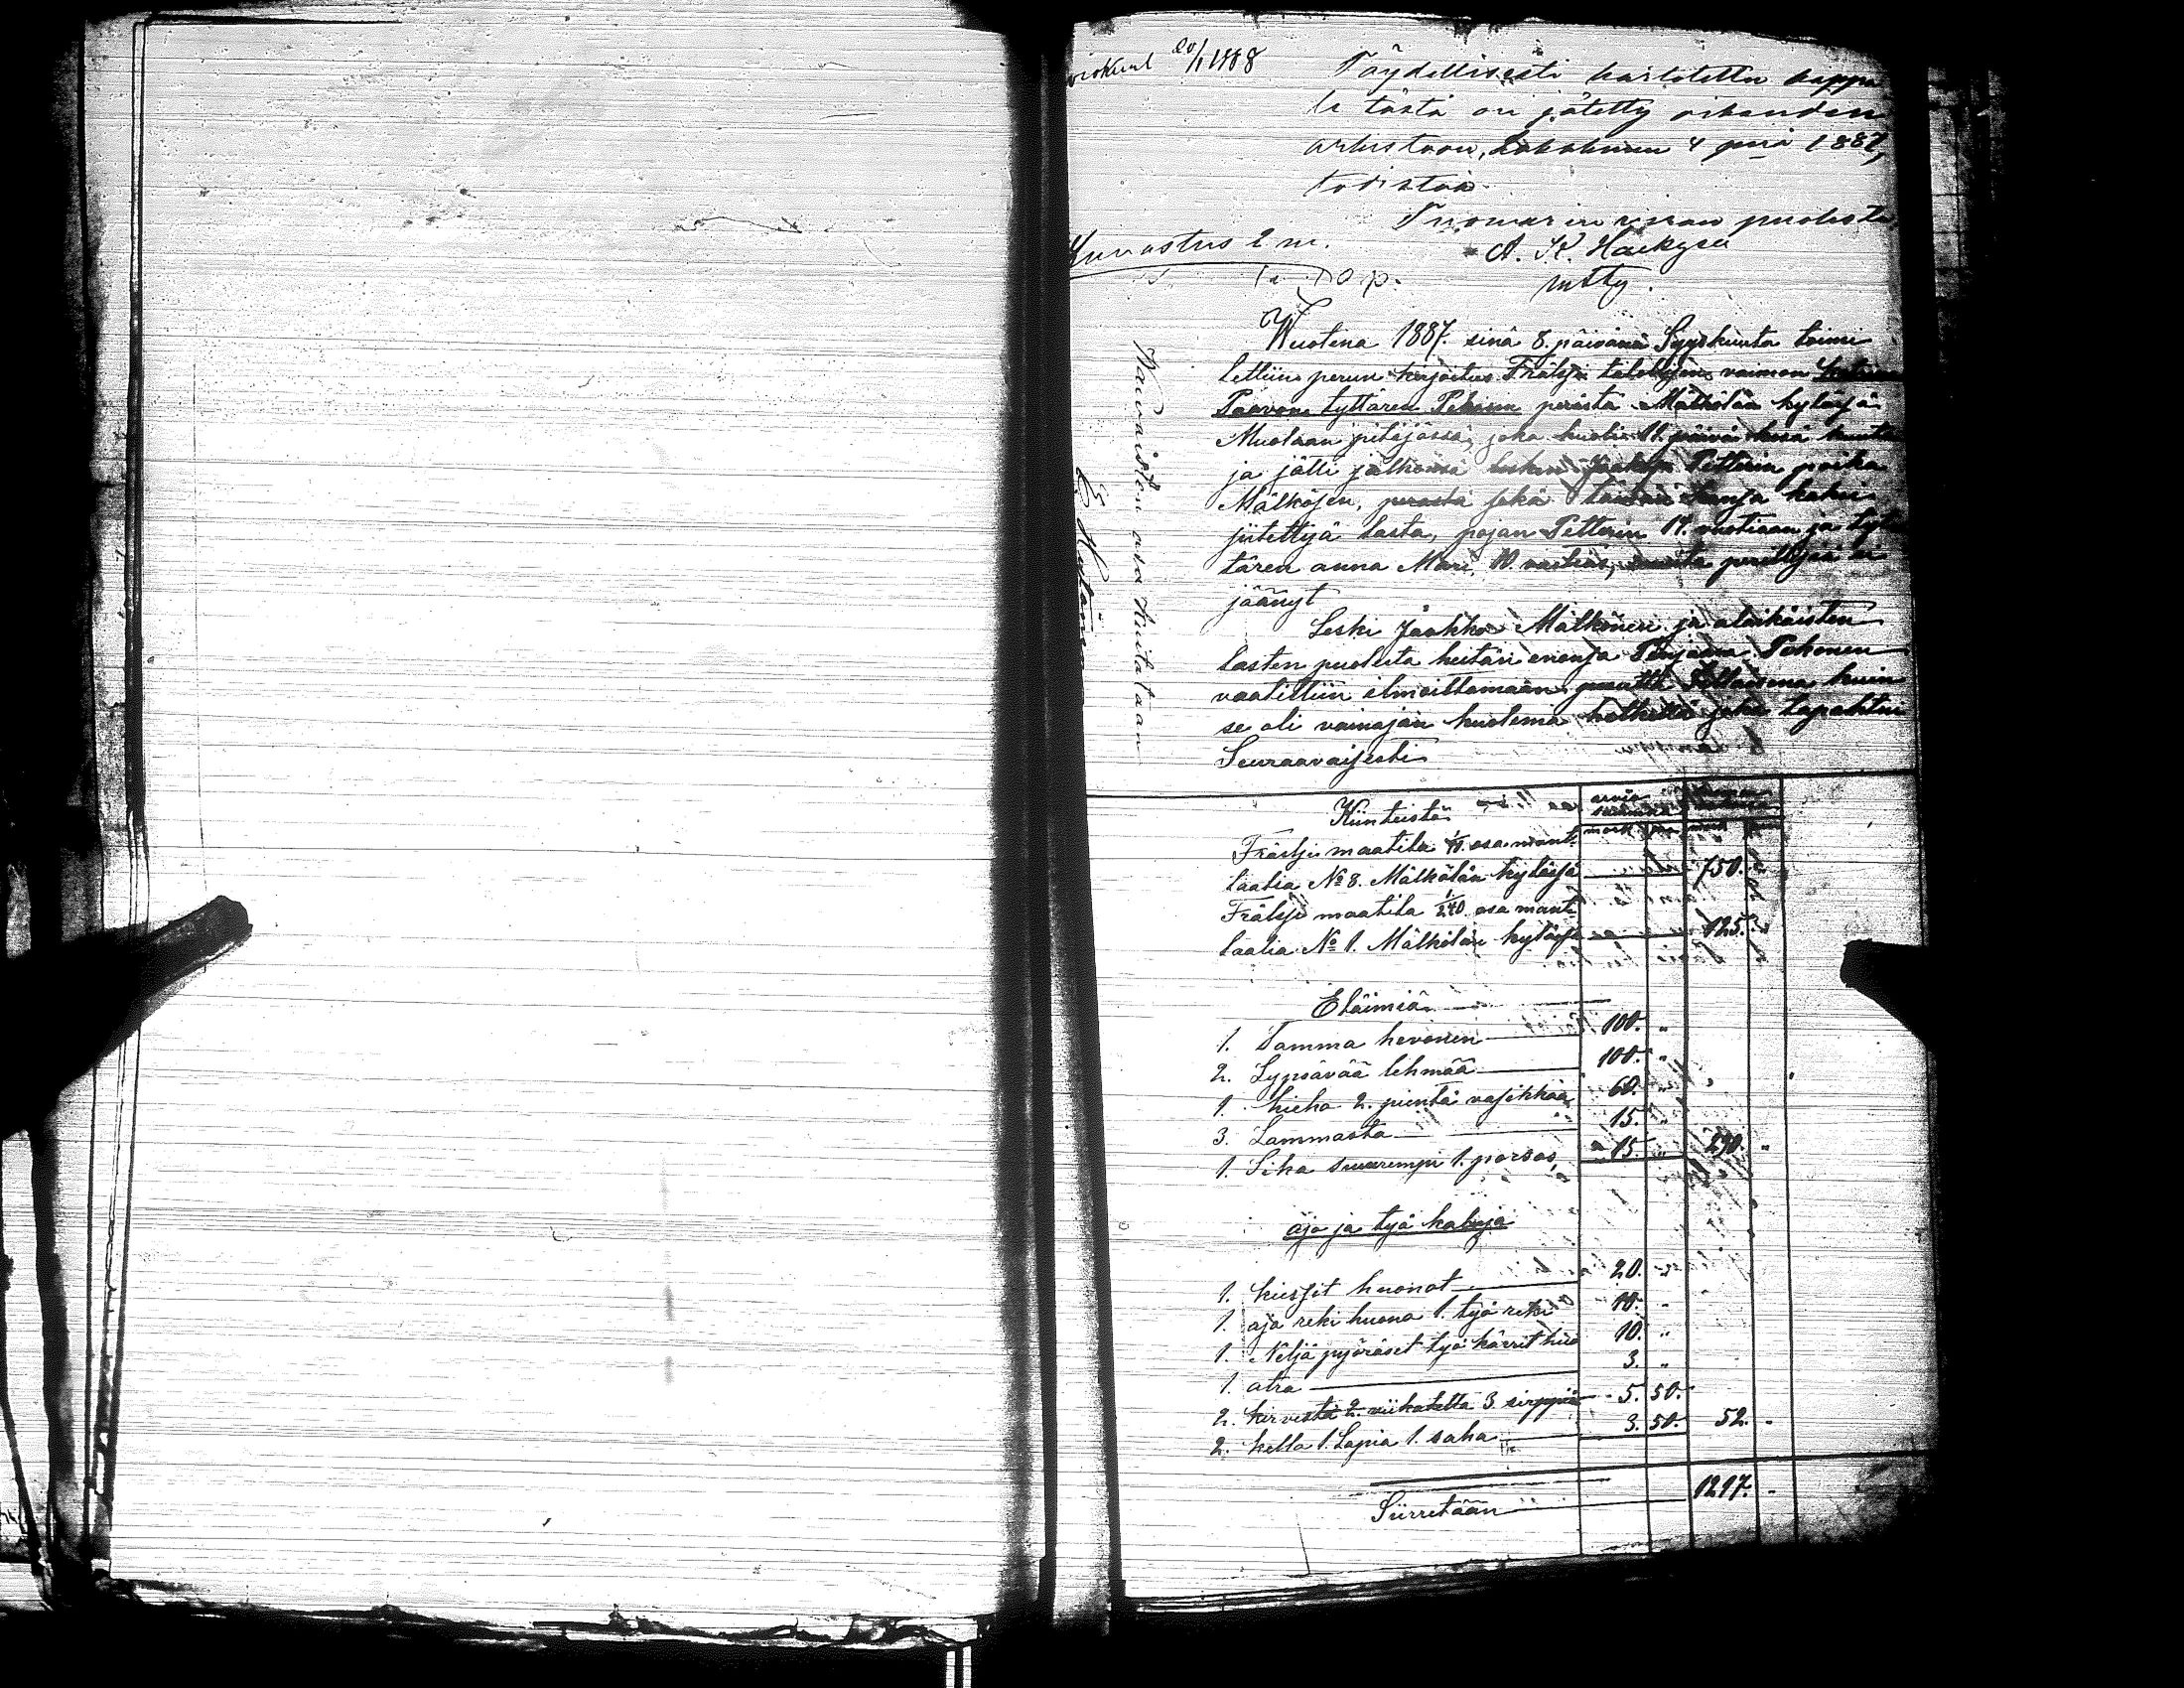 20/1 1888
Täydellisesti kartotettu kappa
le tästä on jätetty oikeuden
arkistoon, Lokakuun 4 pnä 1887,
todistaa
Tuomarin viran puolesta
A. K.
Lunastus 2 m.
10 p.
Wuotena 1887. sinä 8. päivänä Syyskuuta toimi
tettiin perun kirjoitus Frälsi talollisen vaimon
Paavon tyttären Pekosen perästä Mälkölän kylässä
Muolaan pitäjässä, joka kuoli 11. päivä kesä kuuta
ja jätti jälkeensä lesken Jaakko Petterin poika
Mälkösen, perästä sekä kaksi
jütettyä lasta, pojan Petterin 14. vuotiaan ja tyt
tären anna Mari, 10 vuotias, muita perillisiä ei
jäänyt
Leski Jaakko Mälkönen ja alaikäisten
lasten puolesta heitän enonsa Pekonen
vaatittiin ilmoittamaan pesän tilaisena kuin
se oli vainajan kuolema hetkellä joka tapahtui
Seuraavaisesti
Waivaisten osa kuitataan
Kiinteistö
mark
Frälsi maatila osa mant
taalia No 8. Mälkölän kylässä 750.
Frälsi maatila 1/240 osa mant
taalia No 1. Mälkölän kylässä 125.
Eläimiä
1. Tamma hevonen 100. "
2. Lypsävää lehmää 100. "
1. hieho 2. pientä vasikkaa 60. "
3. Lammasta 15. "
1. Sika suurempi 1. porsas 15 " 290. "
ajo ja työ kaluja
1. kiessit huonot 20. "
1. ajo reki huono 1. työ reki 10. "
1. Neljä pyöräset työ kärrit huo 10. "
1. atra 3. "
2. kirvestä 2. viikatetta 3 sirppiä 5. 50.
2. kello 1. Lapia 1. saha 3. 50. 52. "
Siirretään 1217. "